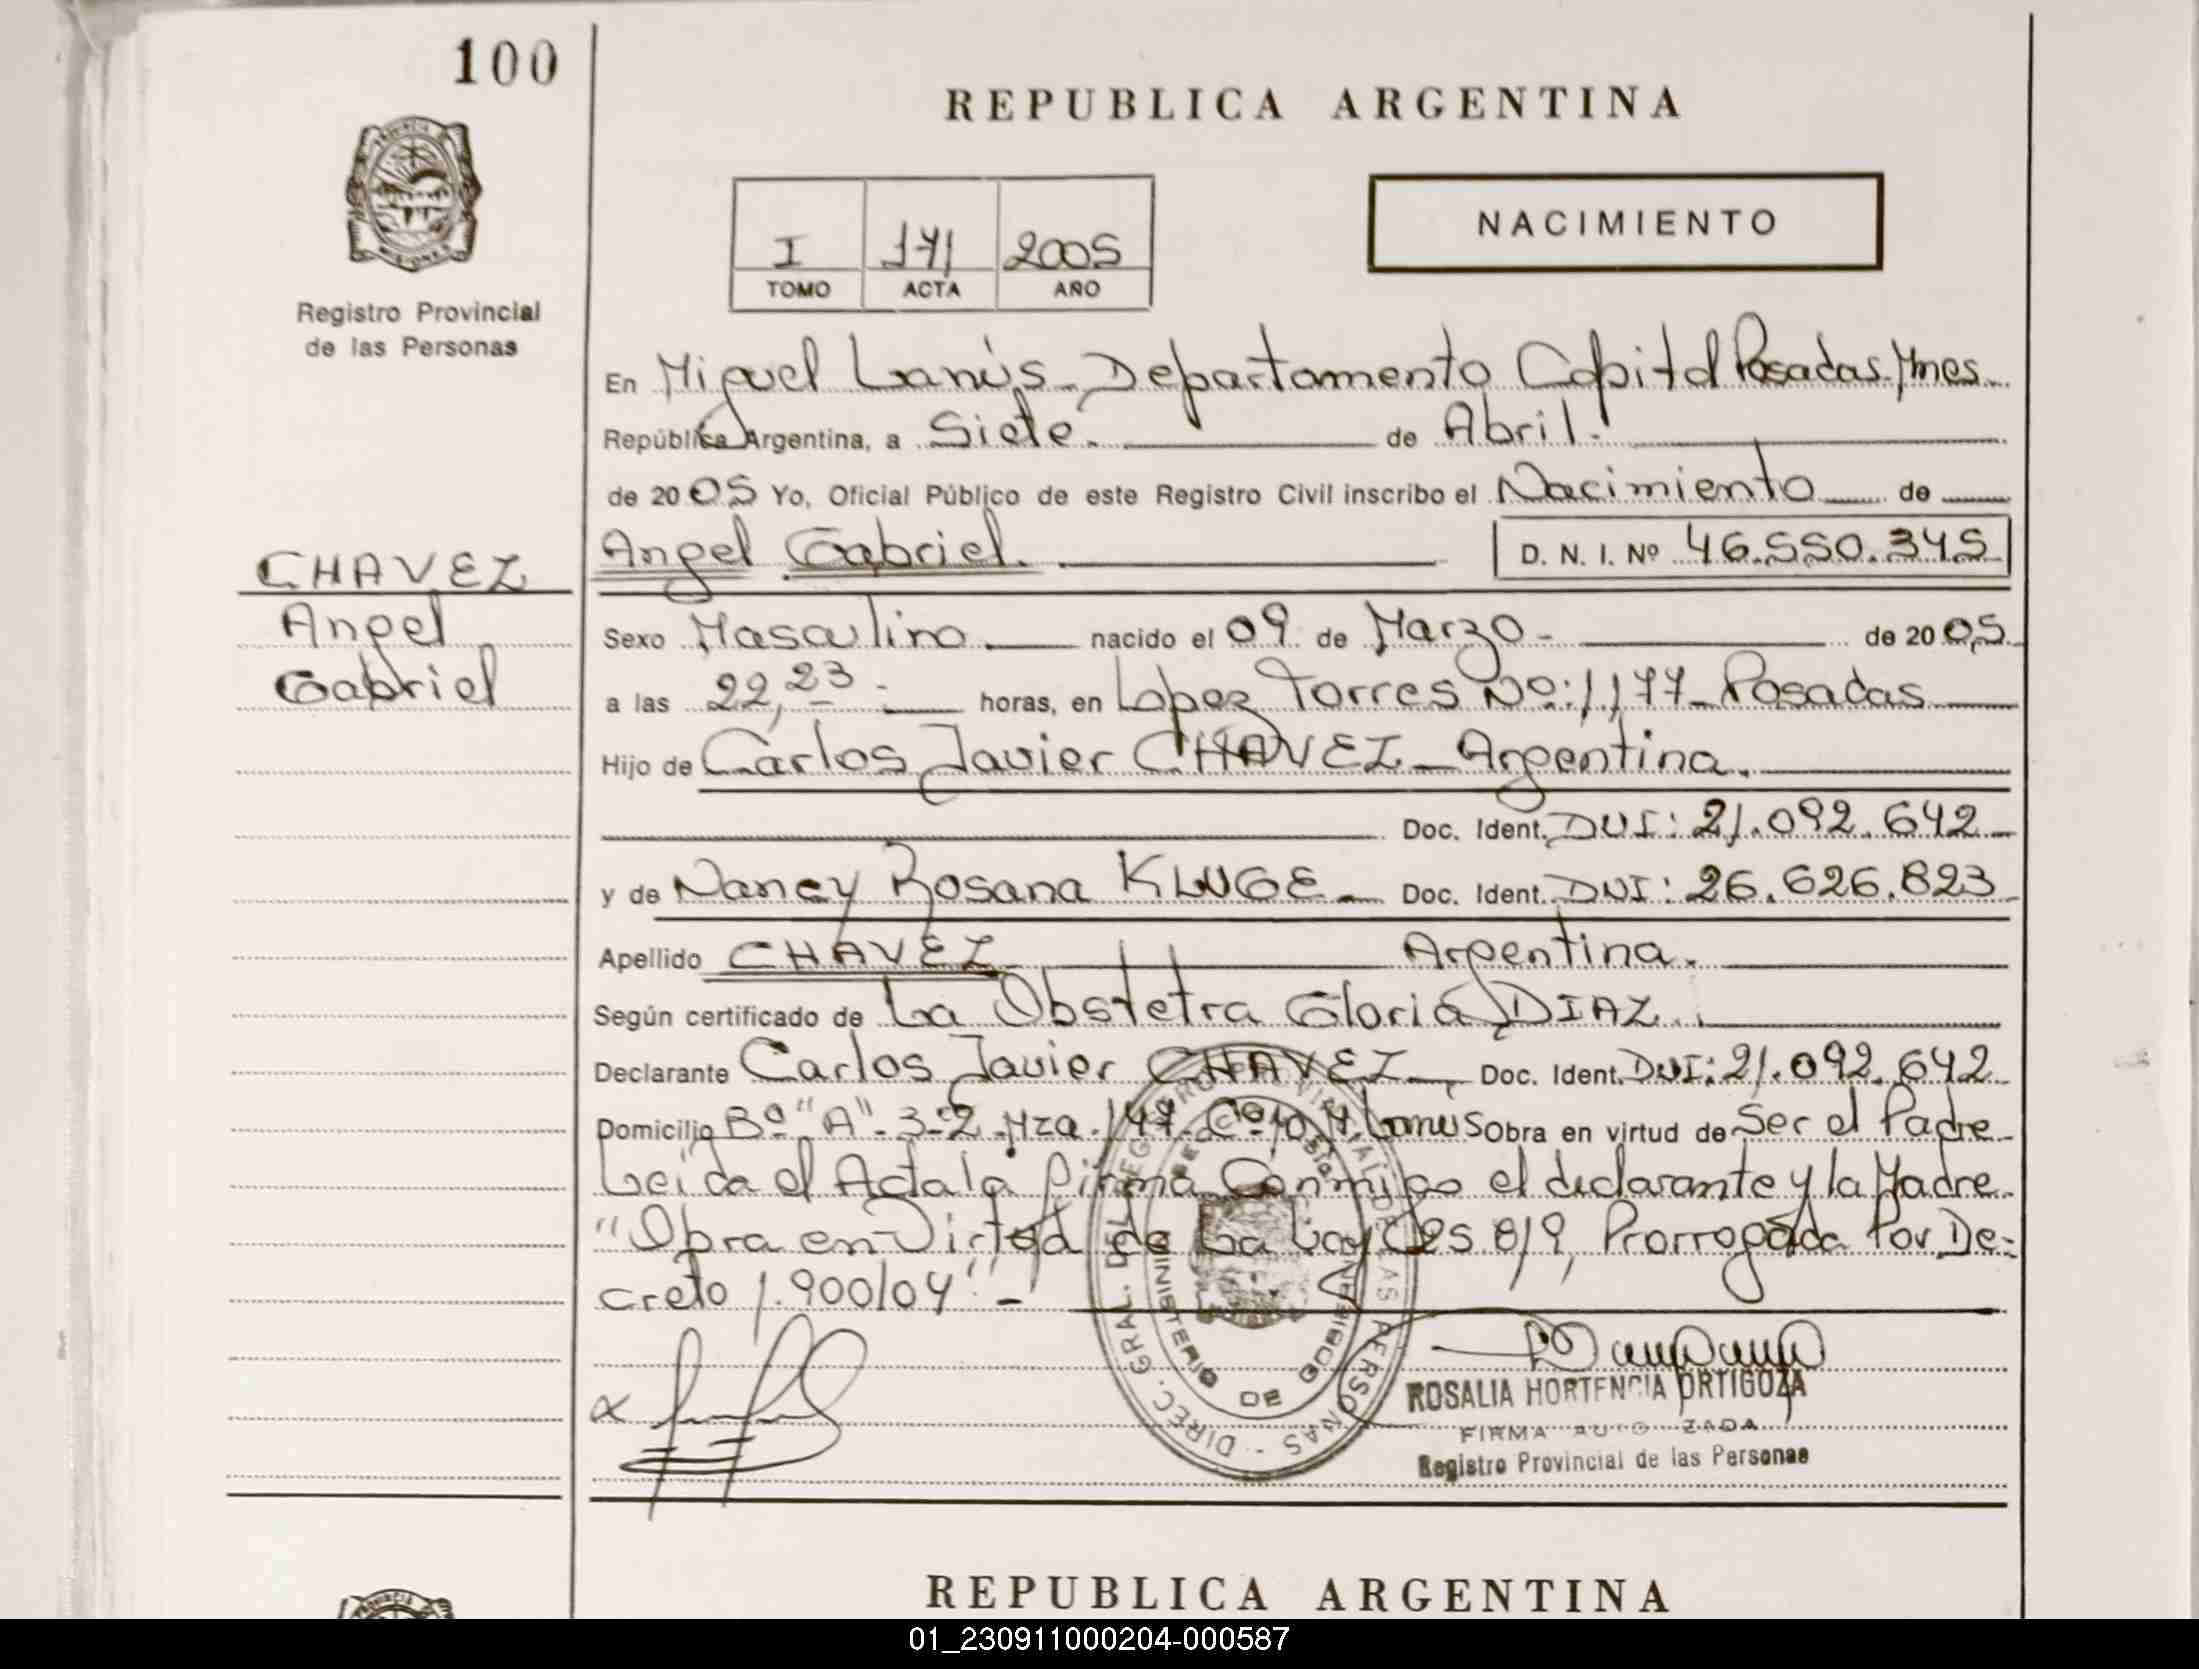 100
REPUBLICA ARGENTINA
NACIMIENTO
I 171 2005
TOMO ACTA AÑO
Registro Provincial
de las Personas
En Miguel Lanús - Departamento Capital Posadas Mnes.
República Argentina, a Siete. de Abril.
de 2005 Yo, Oficial Público de este Registro Civil inscribo el Nacimiento de
CHAVEZ
Angel
Gabriel
Angel Gabriel. D. N. I. Nº 46.550.345
Sexo Masculino nacido el 09 de Marzo - de 2005
a las 22,23 horas, en Lopez Torres Nº: 1177 - Posadas
Hijo de Carlos Javier CHAVEZ - Argentina.
Doc. Ident. DNI: 21.092.642
y de Nancy Rosana KLUGE - Doc. Ident. DNI: 26.626.823
Apellido CHAVEZ Argentina.
Según certificado de La Obstetra Gloria DIAZ.
Declarante Carlos Javier CHAVEZ - Doc. Ident. DNI: 21.092.642
Domicilio Bº "A" - 3-2 Mza. 147 - Cº 10 M. Lanús Obra en virtud de Ser el Padre
Leida el Acta la firma Conmigo el declarante y la Madre
"Obra en Virtud de La Ley 25819, Prorrogada Por De-
creto 1.900/04" -
DIREC. GRAL. DEL REGISTRO PROVINCIAL DE LAS PERSONAS
MINISTERIO DE GOBIERNO
ROSALIA HORTENCIA ORTIGOZA
FIRMA AUTORIZADA
Registro Provincial de las Personas
REPUBLICA ARGENTINA
01_230911000204-000587